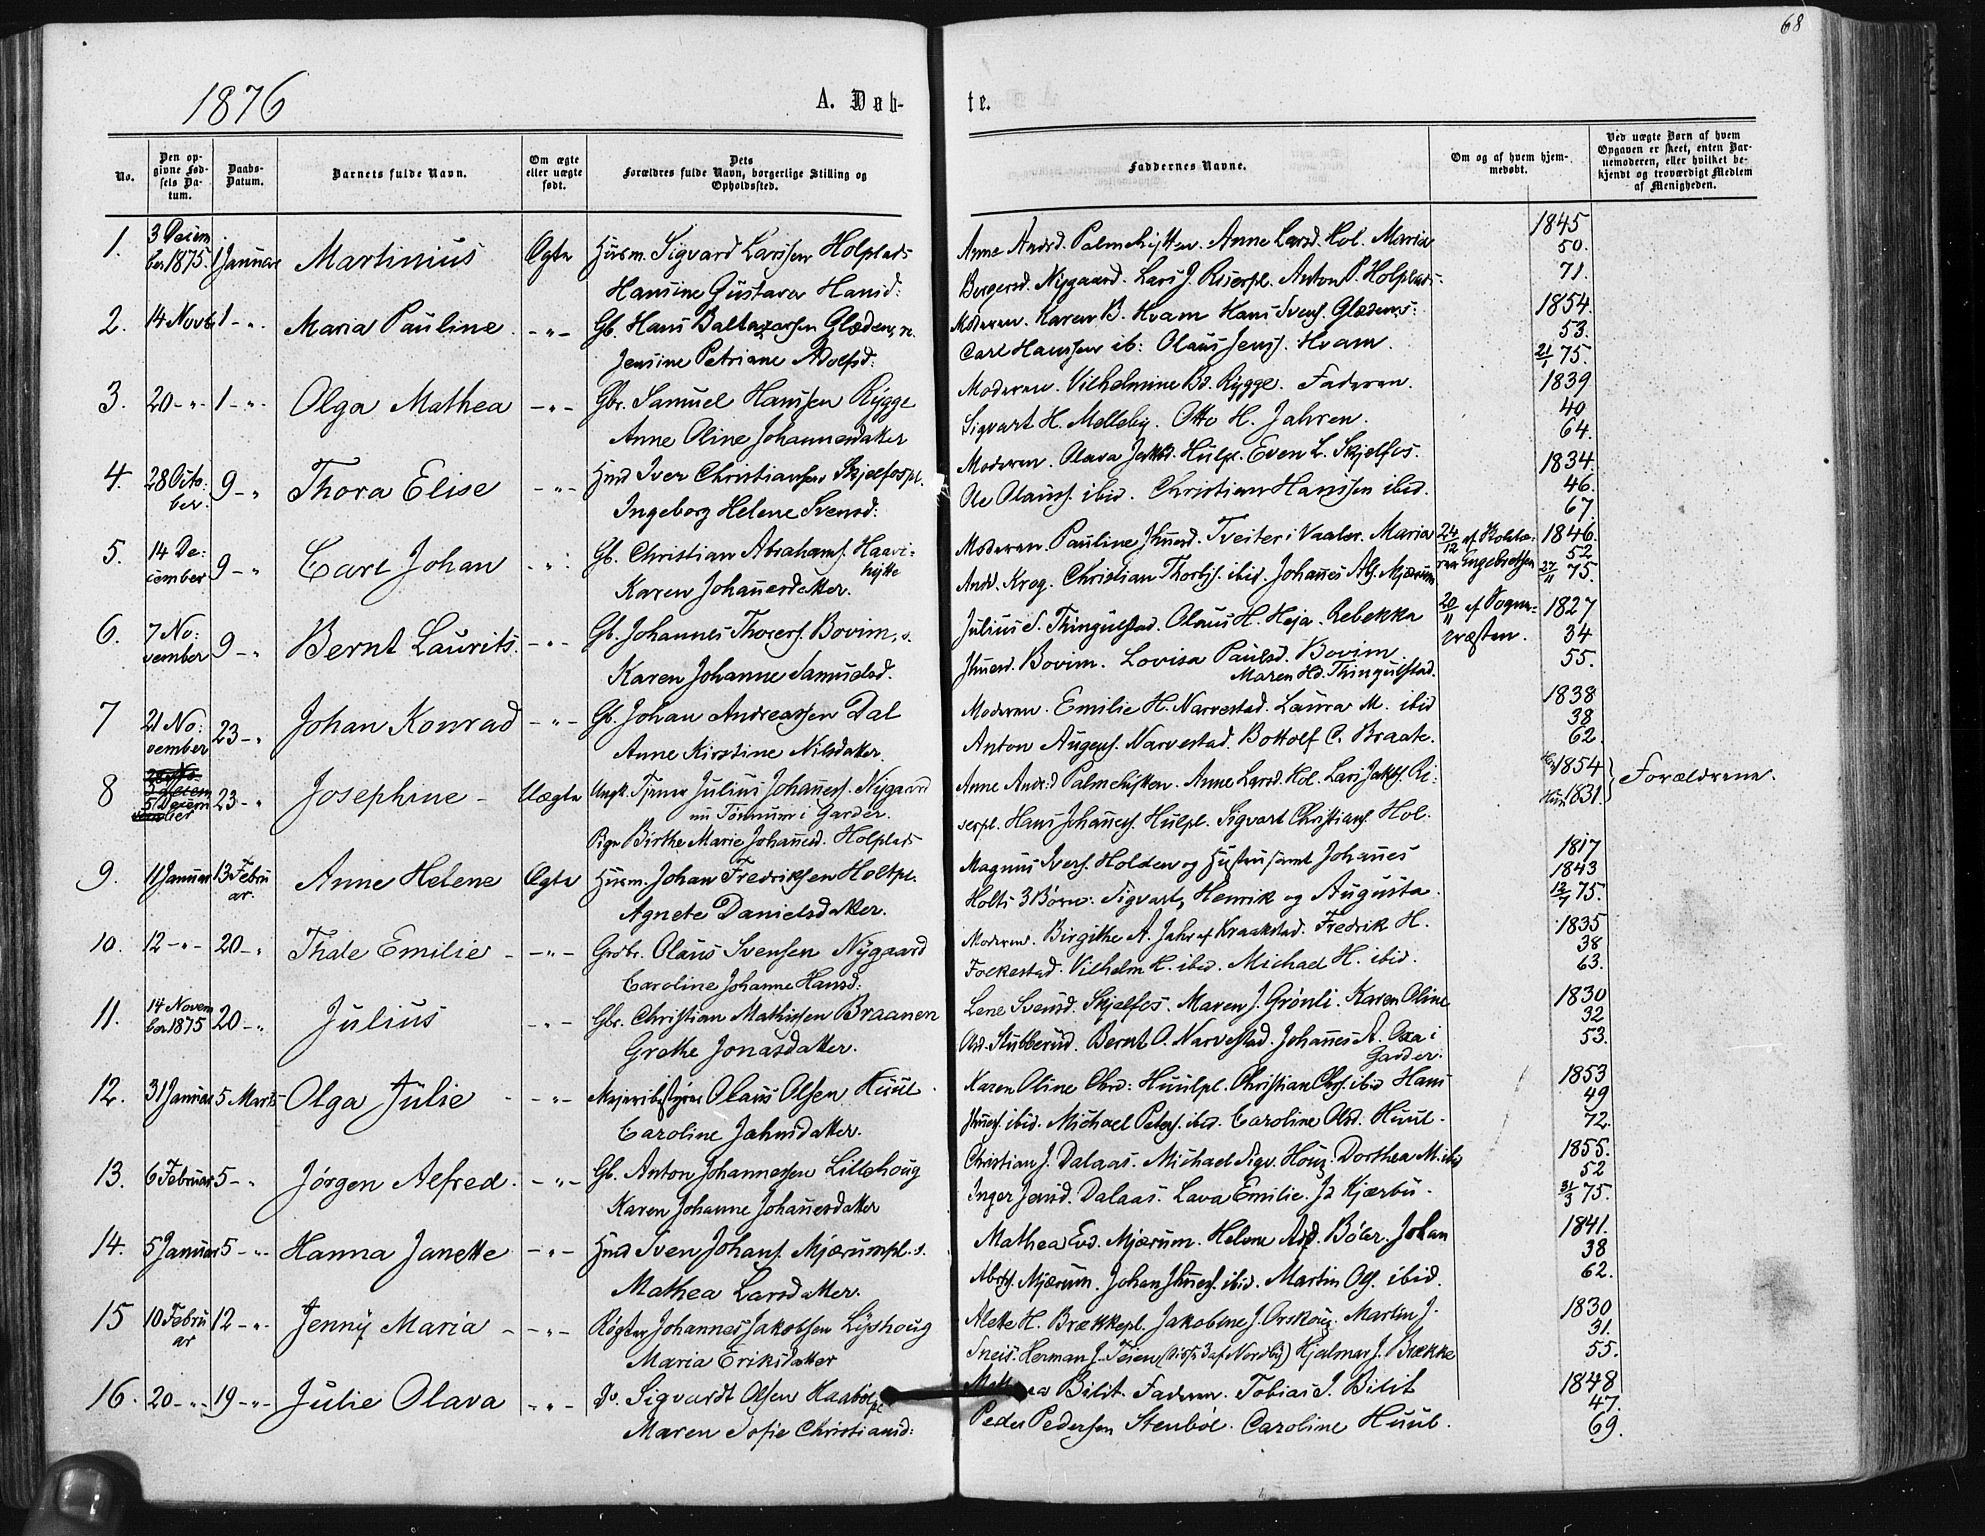 68
1876
A. Døb-
te.
No.
Den op-
givne Fød-
sels Da-
tum.
Daabs-
Datum.
Barnets fulde Navn.
Om ægte
eller uægte
født.
Dets
Forældres fulde Navn, borgerlige Stilling og
Opholdsted.
Faddernes Navne.
Om og af hvem hjem-
medøbt.
Ved uægte Børn af hvem
Opgaven er skeet, enten Bar-
nemoderen, eller hvilket be-
kjendt og troværdigt Medlem
af Menigheden.
1. 3 Decem
ber 1875. 1 Januar Martinius Ægte Husm. Sigvard Larssen Holplads
Hansine Gustava Hansd:
Anne Andrd. Palmehytten. Anne Larsd. Hol. Maria
Bergersd. Nygaard. Lars J. Riserpl. Anton P. Holplads.
1845
50.
71.
2. 14 Novb. 1 - " - Maria Pauline - " - Gb. Hans Baltazarsen Glødens, n.
Jensine Petriane Adolfsd:
Moderen. Karen B. Hvam Hans Svens. Glødens:
Carl Hanssen ib: Olaus Jens. Hvam.
1854.
53.
21/1 75.
3. 20 - " - 1 - " - Olga Mathea - " - Gbr. Samuel Hanssen Rygge
Anne Oline Johannesdatter
Moderen. Vilhelmine Bd. Rygge. Faderen.
Sigvart H. Melleby. Otto H. Jahren.
1839
40
64.
4. 28 Octo:
ber. 9 - " Thora Elise - " - Hmd Iver Christiansen Skjelfospl.
Ingeborg Helene Svensd:
Moderen. Olava Jakbd. Hulpl. Even L. Skjelfos.
Ole Olauss. ibid. Christian Hanssen ibid.
1834.
46.
67.
5. 14 De:
cember 9 - " Carl Johan - " - Gb. Christian Abrahams. Haavi-
hytte
Karen Johannesdatter.
Moderen. Pauline Jhnesd. Tveiter i Vaaler. Maria
Andd. Krog. Christian Thorbjs. ibid. Johannes Als. Mjærum
24/12 af
Engebretsen
1846.
52
27/11 75.
6. 7 No:
vember 9 - " Bernt Laurits. - " - Gb. Johannes Thorers. Bovim, s.
Karen Johanne Samuelsd.
Julius S. Thingulstad. Olaus H. Heja. Rebekka
Jhnesd. Bovim. Lovisa Paulsd. Bovim.
Maren Hd. Thingulstad.
20/11 af Sogne-
præsten.
1827
34
55.
7 21 No:
vember 23 - " Johan Konrad - " - Gb. Johan Andreassen Dal
Anne Kirstine Nilsdatter.
Moderen. Emilie H. Narvestad. Laura M. ibid
Anton Augens. Narvestad. Bottolf C. Braate.
1838
38
62.
8 5 Decem
23 - " Josephine - Uægte Ungk. Tjener Julius Johannes. Nygaard
nu Tømmum i Garder.
Pige Birthe Marie Johannesd. Holplads
Anne Andr:d Palmehytten. Anne Larsd. Hol. Lars Jakbs. Ri-
serpl. Hans Johannes. Hulpl. Sigvart Christians. Hol.
Han 1854
Hun 1831. Forældrene.
9. 11 Januar 13 Febru
ar. Anne Helene Ægte Husm. Johan Fredriksen Holtpl.
Agnete Danielsdatter.
Magnus Ivers. Holden og Hustru samt Johannes
Holts 3 Børn: Sigvart, Henrik og Augusta.
1817
1843
12/7 75.
10. 12 - " - 20 - " Thale Emilie - - " - Grdbr. Olaus Svensen Nygaard
Caroline Johanne Hansd:
Moderen. Birgithe A. Jahr af Kraakstad. Fredrik H.
Folkestad. Vilhelm K. ibid. Michael H. ibid.
1835
38
63.
11. 14 Novem
ber 1875 20 - " Julius - " - Gbr. Christian Mathissen Braanen
Grethe Jonasdatter.
Lene Svensd. Skjelfos. Maren J. Grønli. Karen Oline
Olsd. Stubberud. Bernt O. Narvestad. Johannes A. Oxa i
Garder.
1830
32
53.
12. 31 Januar 5 Marts Olga Julie - - " - Meieribestyrer Olaus Olsen Huul
Caroline Jahnsdatter.
Karen Oline Chrd: Huulpl. Christian Chrs. ibid Hans
Jhness. ibid. Michael Peters. ibid. Caroline Olsd. Huul.
1853
49
72.
13. 6 Februar 5 - " Jørgen Alfred. - " - Gb. Anton Johannessen Lillehoug
Karen Johanne Johannesdatter
Christian J. Dalaas. Michael Sigv. Houg. Dorthea M. ibid
Inger Jensd. Dalaas. Lava Emilie. Jd Kjærbu.
1855.
52
31/3 75.
14. 5 Januar 5 - " - Hanna Janette - " - Hmd Sven Johans. Mjærumpl. s.
Mathea Larsdatter.
Mathea Evd. Mjærum. Helene Asd. Bøler. Johan
Abrhs. Mjærum. Johan Jhness. ibid. Martin Ols. ibid.
1841.
38
62.
15 10 Febru
ar 12 - " - Jenny Maria - - " - Røgter Johannes Jakobsen Lyshoug
Maria Eriksdatter
Alette H. Brækkepl. Jakobine J. Orskoug. Martin J.
Sneis. Herman J. Teien (disse 3 af Nordby) Hjalmar J. Brække
1830
31.
55.
16. 20 - " - 19 - " - Julie Olava - " - Do. Sigvardt Olsen Haabølpl.
Maren Sofie Christiansd:
Bilit. Faderen. Tobias J. Bilit
Peder Pedersen Stenbøl. Caroline Huul.
1848
47.
69.